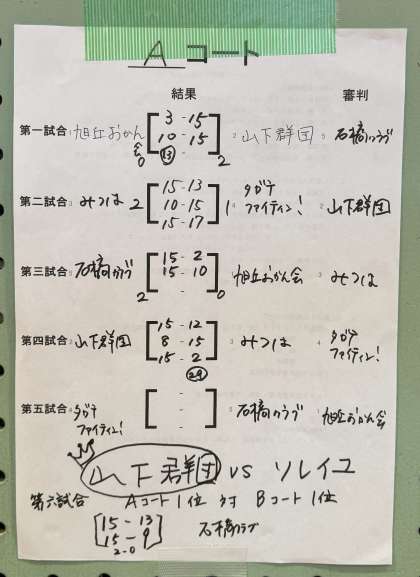 A コート
結果 審判
第一試合 1 旭丘おかん会 0 [3 - 15 10 - 15 (13) -] 2 2 山下群団 5 石橋クラブ
第二試合 3 みつは 2 [15 - 13 10 - 15 15 - 17] 1 4 タガチファイティン! 2 山下群団
第三試合 5 石橋クラブ 2 [15 - 2 15 - 10 -] 0 1 旭丘おかん会 3 みつは
第四試合 2 山下群団 [15 - 12 8 - 15 15 - 2] (29) 3 みつは 4 タガチファイティン!
第五試合 4 タガチファイティン! [- - -] 5 石橋クラブ 1 旭丘おかん会
山下群団 vs ソレイユ
第六試合 Aコート1位 対 Bコート1位
[15 - 13 15 - 9] 2-0 石橋クラブ